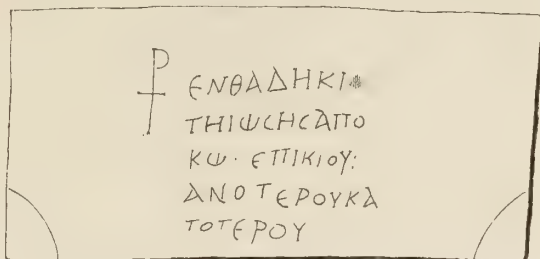 ⳨ ΕΝΘΑΔΗΚΙ
ΤΗΙΨCΗCΑΠΟ
ΚΩ· ΕΠΙΚΙΟΥ:
ΑΝΟΤΕΡΟΥΚΑ
ΤΟΤΕΡΟΥ